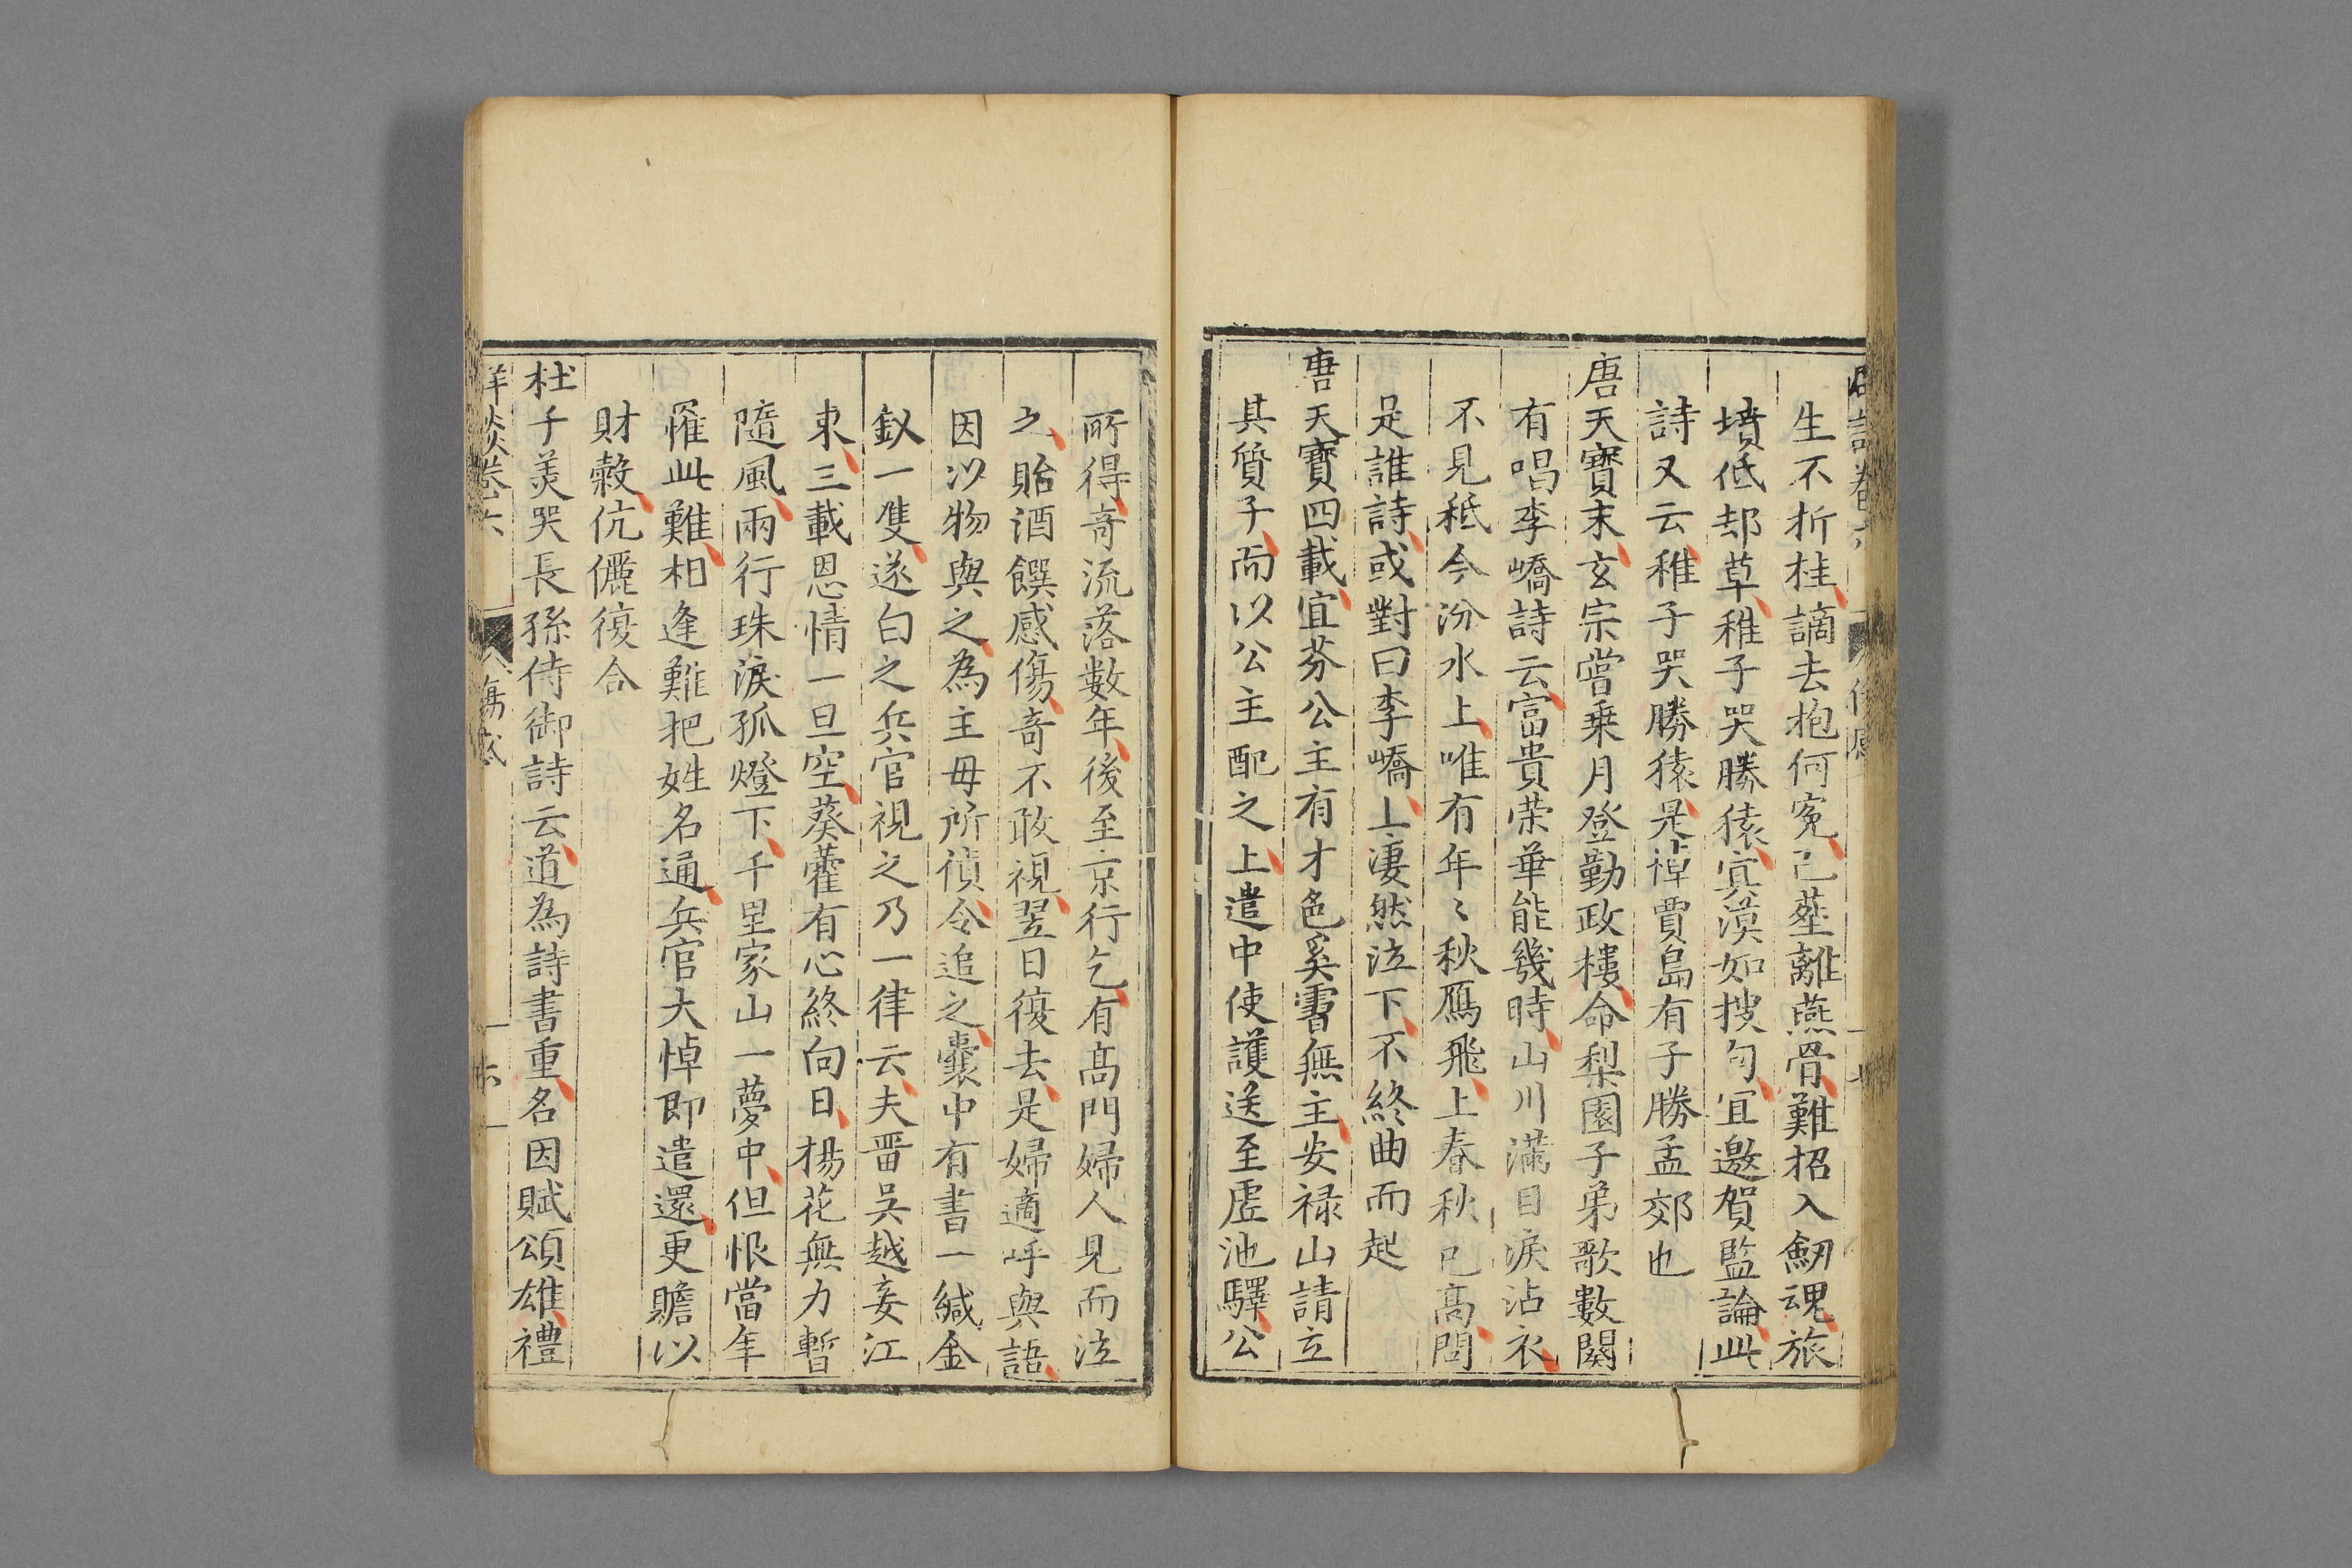 生不折桂謫去抱何寃已塟離燕骨難招入劒魂旅
墳低却草稚子哭勝猿宜漠如搜句宜邀賀監論此
詩又云稚子哭勝猿是悼賈島有子勝孟郊也
唐天寶末玄宗嘗乗月登勤政樓命梨園子弟歌數闋
有唱李嶠詩云富貴荣華能幾時山川滿目淚沾衣
不見秪今汾水上唯有年〻秋鴈飛上春秋已髙問
是誰詩或對曰李嶠上凄然泣下不終曲而起
唐天寶四載宜芬公主有才色奚霫無主安禄山請立
其質子而以公主配之上遣中使護送至虚池驛公
所得竒流落數年後至京行乞有髙門婦人見而泣
之貽酒饌感傷竒不敢視翌日復去是婦適呼與語
因以物與之為主毋所偵令追之嚢中有書一緘金
釵一隻遂白之兵官視之乃一律云夫晋吳越妾江
東三載恩情一旦空葵藿有心終向日楊花無力暫
隨風兩行珠淚孤燈下千里家山一夢中但恨當年
罹此難相逢難把姓名通兵官大悼即遣還更贍以
財榖伉儷復合
杜子美哭長孫侍御詩云道為詩書重名因賦頌雄禮